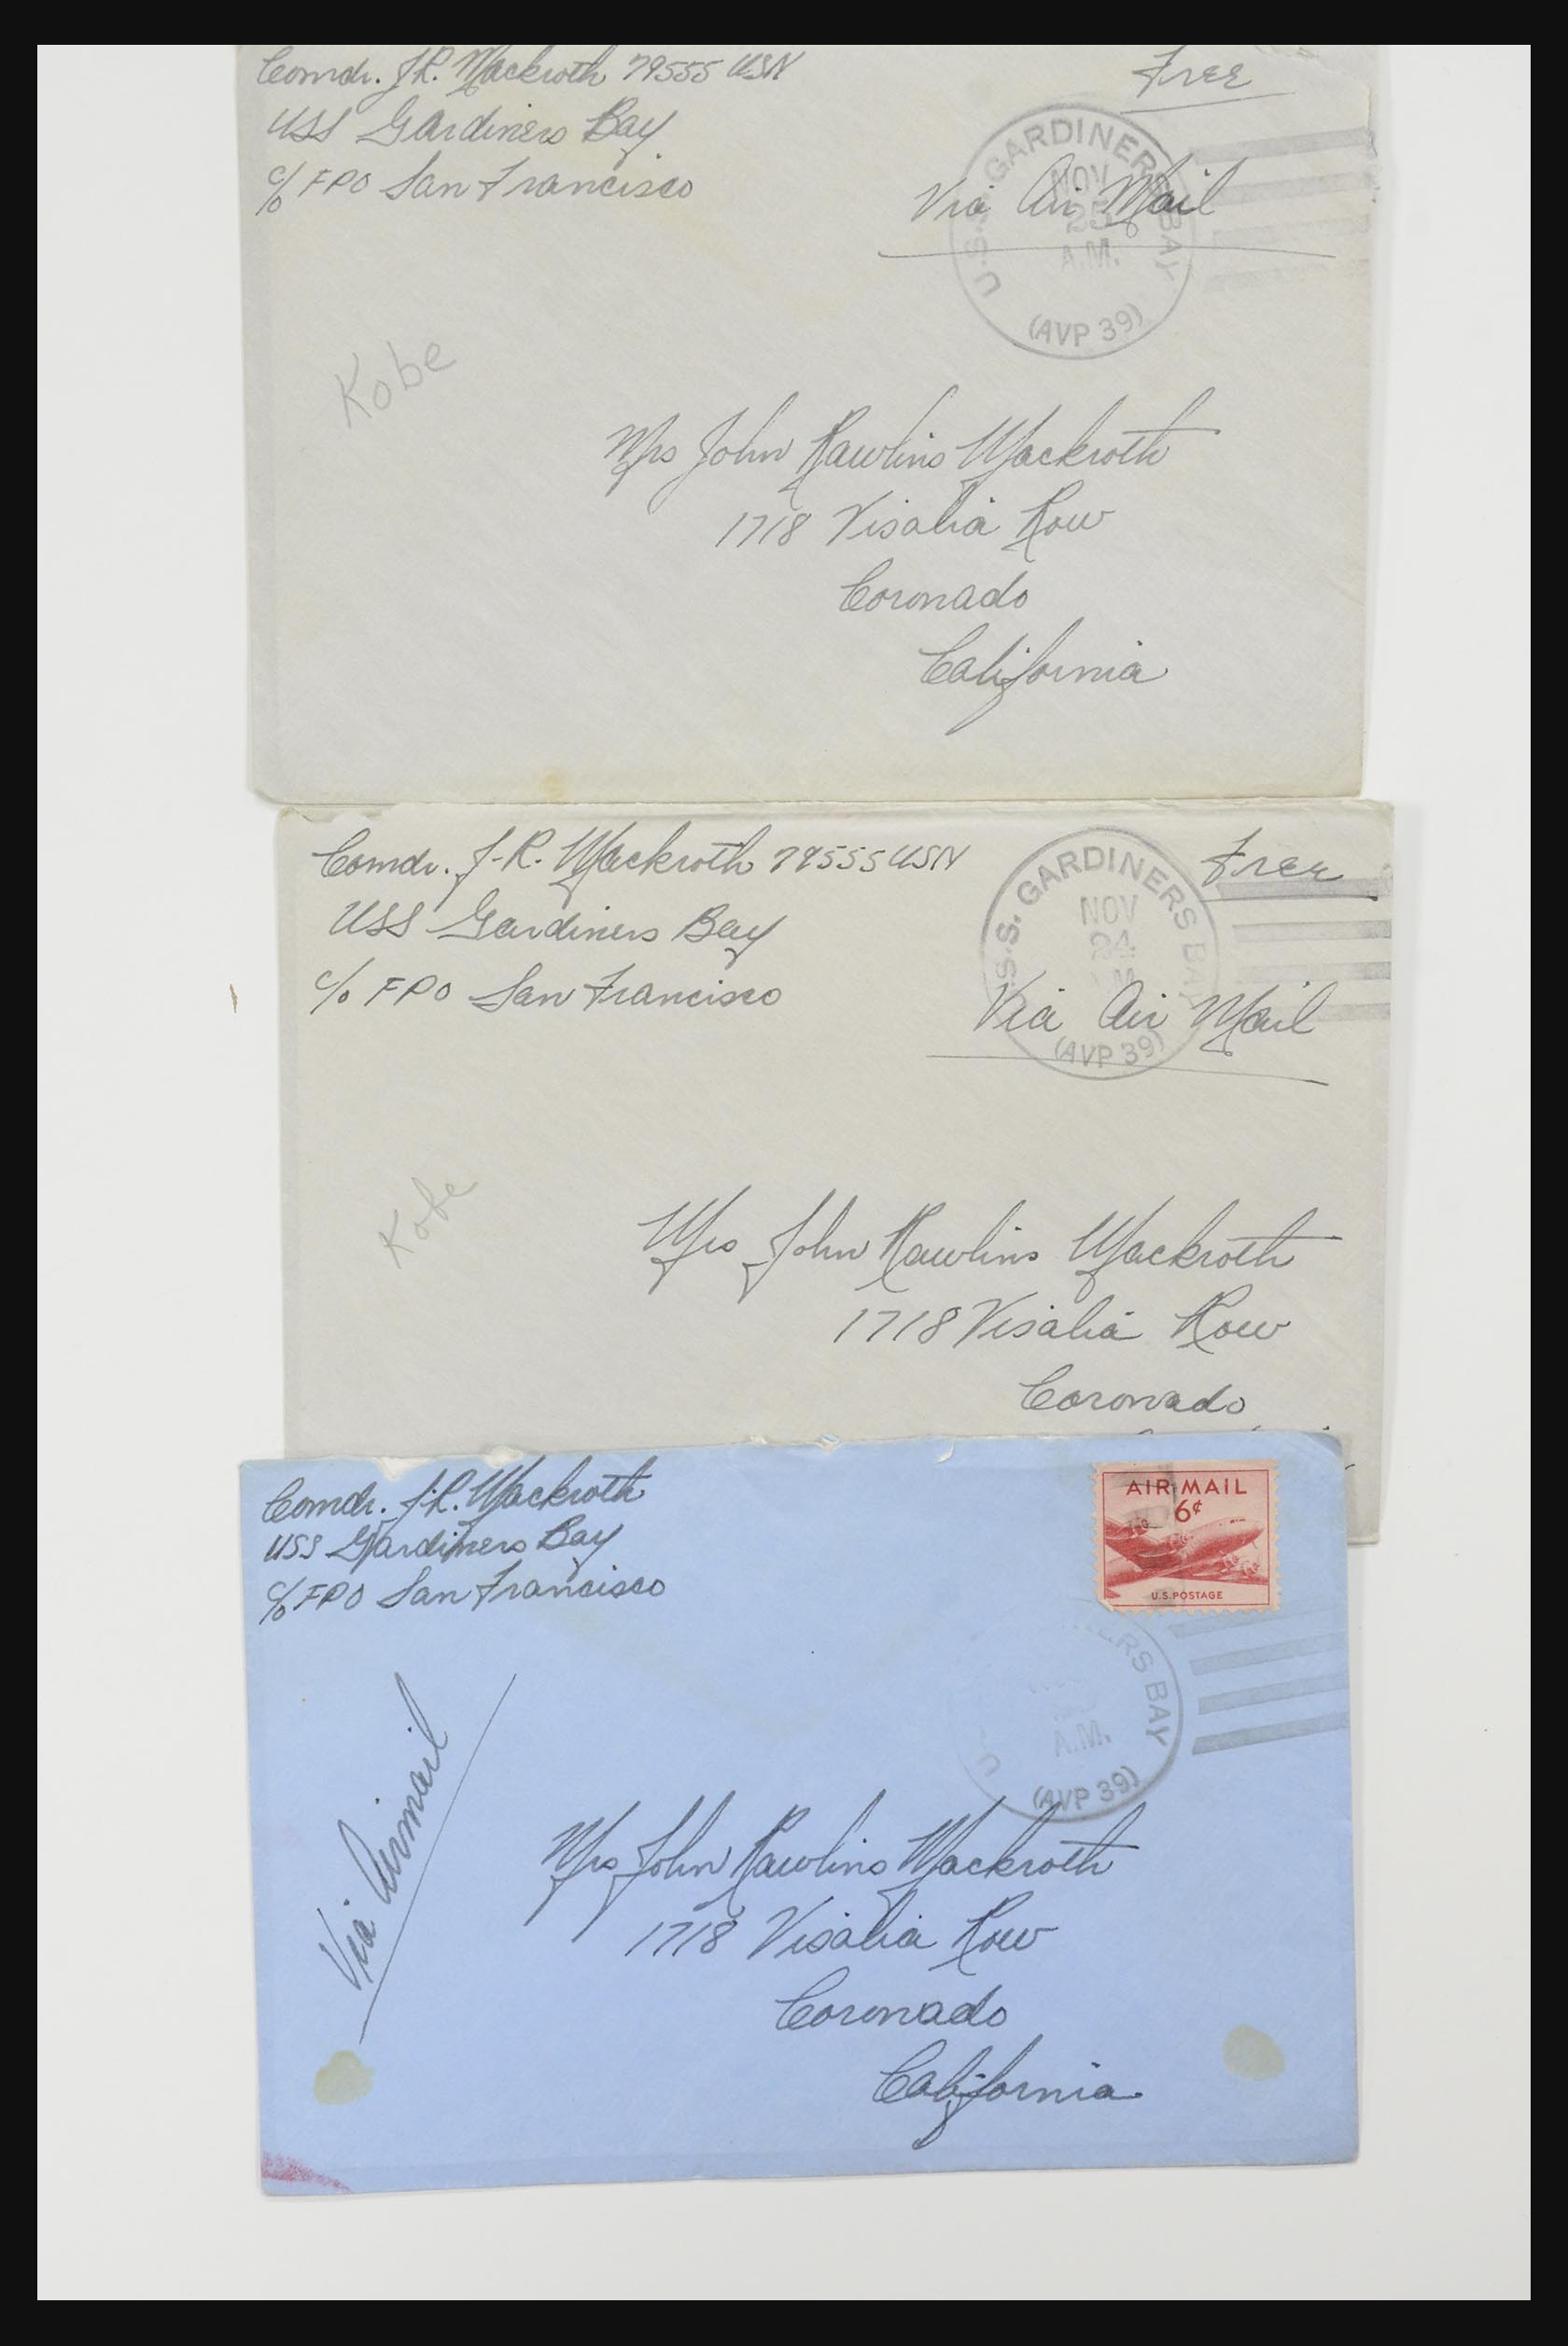 Comdr. J.R. Mackroth 79555 USN
USS Gardiners Bay
c/o FPO San Francisco
Free
U.S.S. GARDINERS BAY
NOV
25
A.M.
(AVP 39)
Via Air Mail
Kobe
Mrs John Rawlins Mackroth
1718 Visalia Row
Coronado
California
Comdr. J.R. Mackroth 79555 USN
USS Gardiners Bay
c/o FPO San Francisco
Free
S.S. GARDINERS BAY
NOV
24
(AVP 39)
Via Air Mail
Kobe
Mrs John Rawlins Mackroth
1718 Visalia Row
Coronado
Comdr. J.R. Mackroth
USS Gardiners Bay
c/o FPO San Francisco
AIR MAIL
6¢
U.S. POSTAGE
U ERS BAY
A.M.
(AVP 39)
Via Airmail
Mrs John Rawlins Mackroth
1718 Visalia Row
Coronado
California